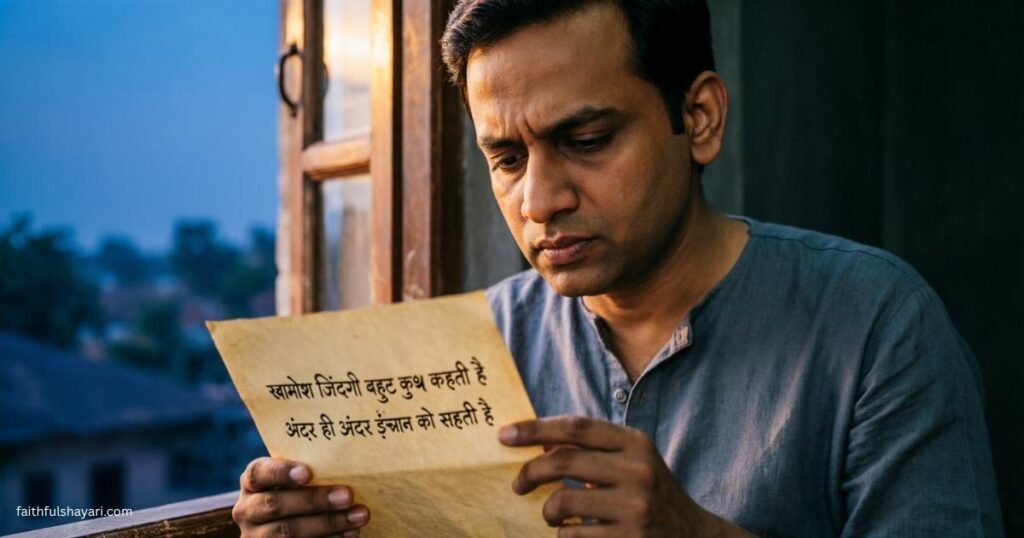 खामोश जिंदगी बहुट कुथ कहती है
अंदर ही अंदर इंन्नान को सहती है
faithfulshayari.com